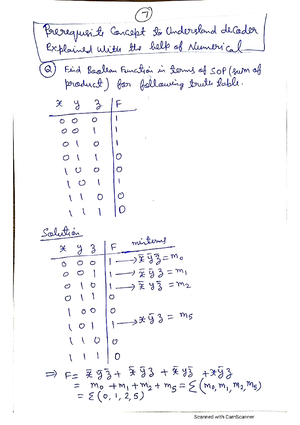 7
Prerequisite Concept to Understand decoder
Explained with the help of Numerical
Q Find Boolean Function in terms of SOP (sum of
product) for following truth table.
x y z F
0 0 0 1
0 0 1 1
0 1 0 1
0 1 1 0
1 0 0 0
1 0 1 1
1 1 0 0
1 1 1 0
Solution
x y z F minterms
0 0 0 1 → x̄ ȳ z̄ = m₀
0 0 1 1 → x̄ ȳ z = m₁
0 1 0 1 → x̄ y z̄ = m₂
0 1 1 0
1 0 0 0
1 0 1 1 → x ȳ z = m₅
1 1 0 0
1 1 1 0
⇒ F = x̄ ȳ z̄ + x̄ ȳ z + x̄ y z̄ + x ȳ z
= m₀ + m₁ + m₂ + m₅ = Σ(m₀, m₁, m₂, m₅)
= Σ(0, 1, 2, 5)
Scanned with CamScanner